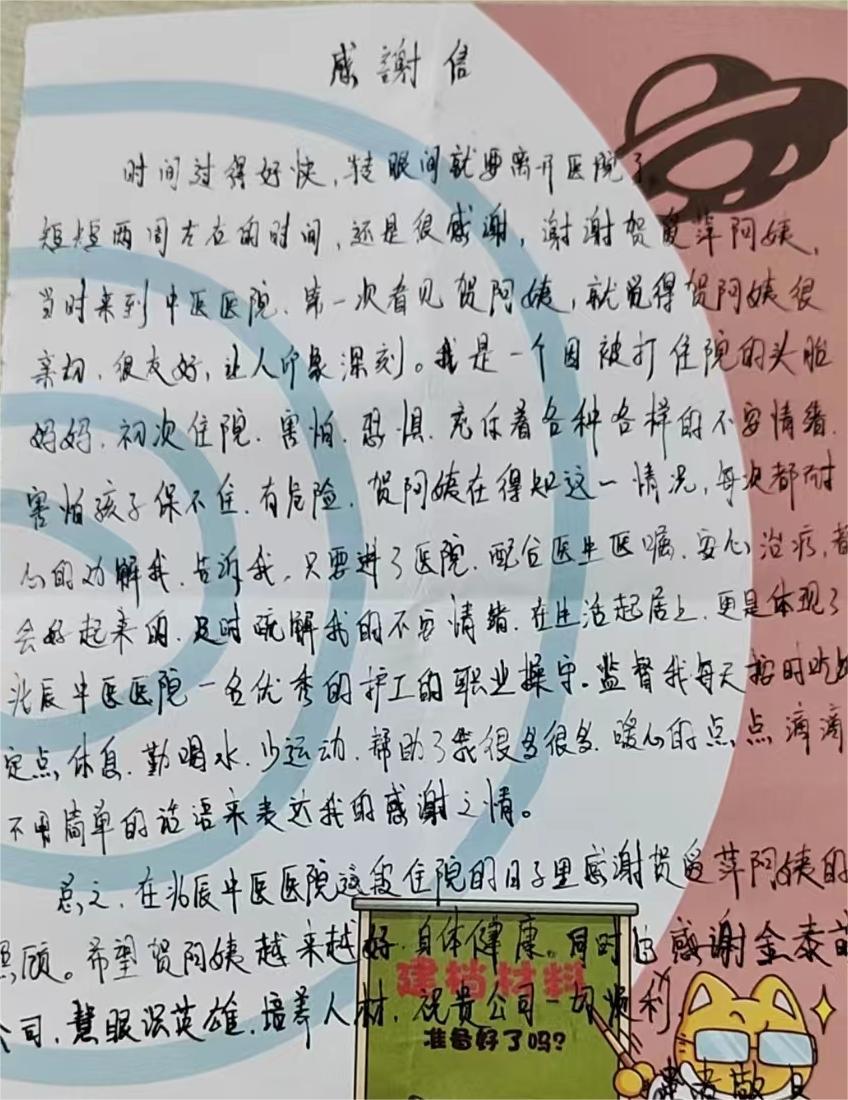 感謝信
时间过得好快,转眼间就要离开医院了
短短两周左右的时间,还是很感谢,谢谢贺爱萍阿姨,
当时来到中医医院、第一次看见贺阿姨,就觉得贺阿姨很
亲切、很友好,让人印象深刻。我是一个因被打住院的头胎
妈妈、初次住院、害怕、恐惧、充斥着各种各样的不安情绪、
害怕孩子保不住、有危险、贺阿姨在得知这一情况,每次都耐
心的劝解我、告诉我,只要进了医院、配合医生医嘱、安心治疗,都
会好起来的、及时疏解我的不安情绪、在生活起居上、更是体现了
北辰中医医院一名优秀的护工的职业操守。监督我每天按时吃
定点休息、勤喝水、少运动、帮助了我很多很多、暖心的点点滴滴
不用简单的话语来表达我的感谢之情。
总之、在北辰中医医院这段住院的日子里感谢贺爱萍阿姨的
照顾。希望贺阿姨越来越好、身体健康。同时也感谢金泰
公司,慧眼识英雄、培养人材,祝贵公司一切顺利、
建档材料
准备好了吗?
患者敬上